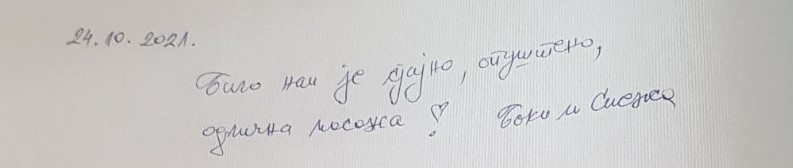 24.10.2021.
Било нам је сјајно, опуштено,
одлична масажа! Боки и Снежа